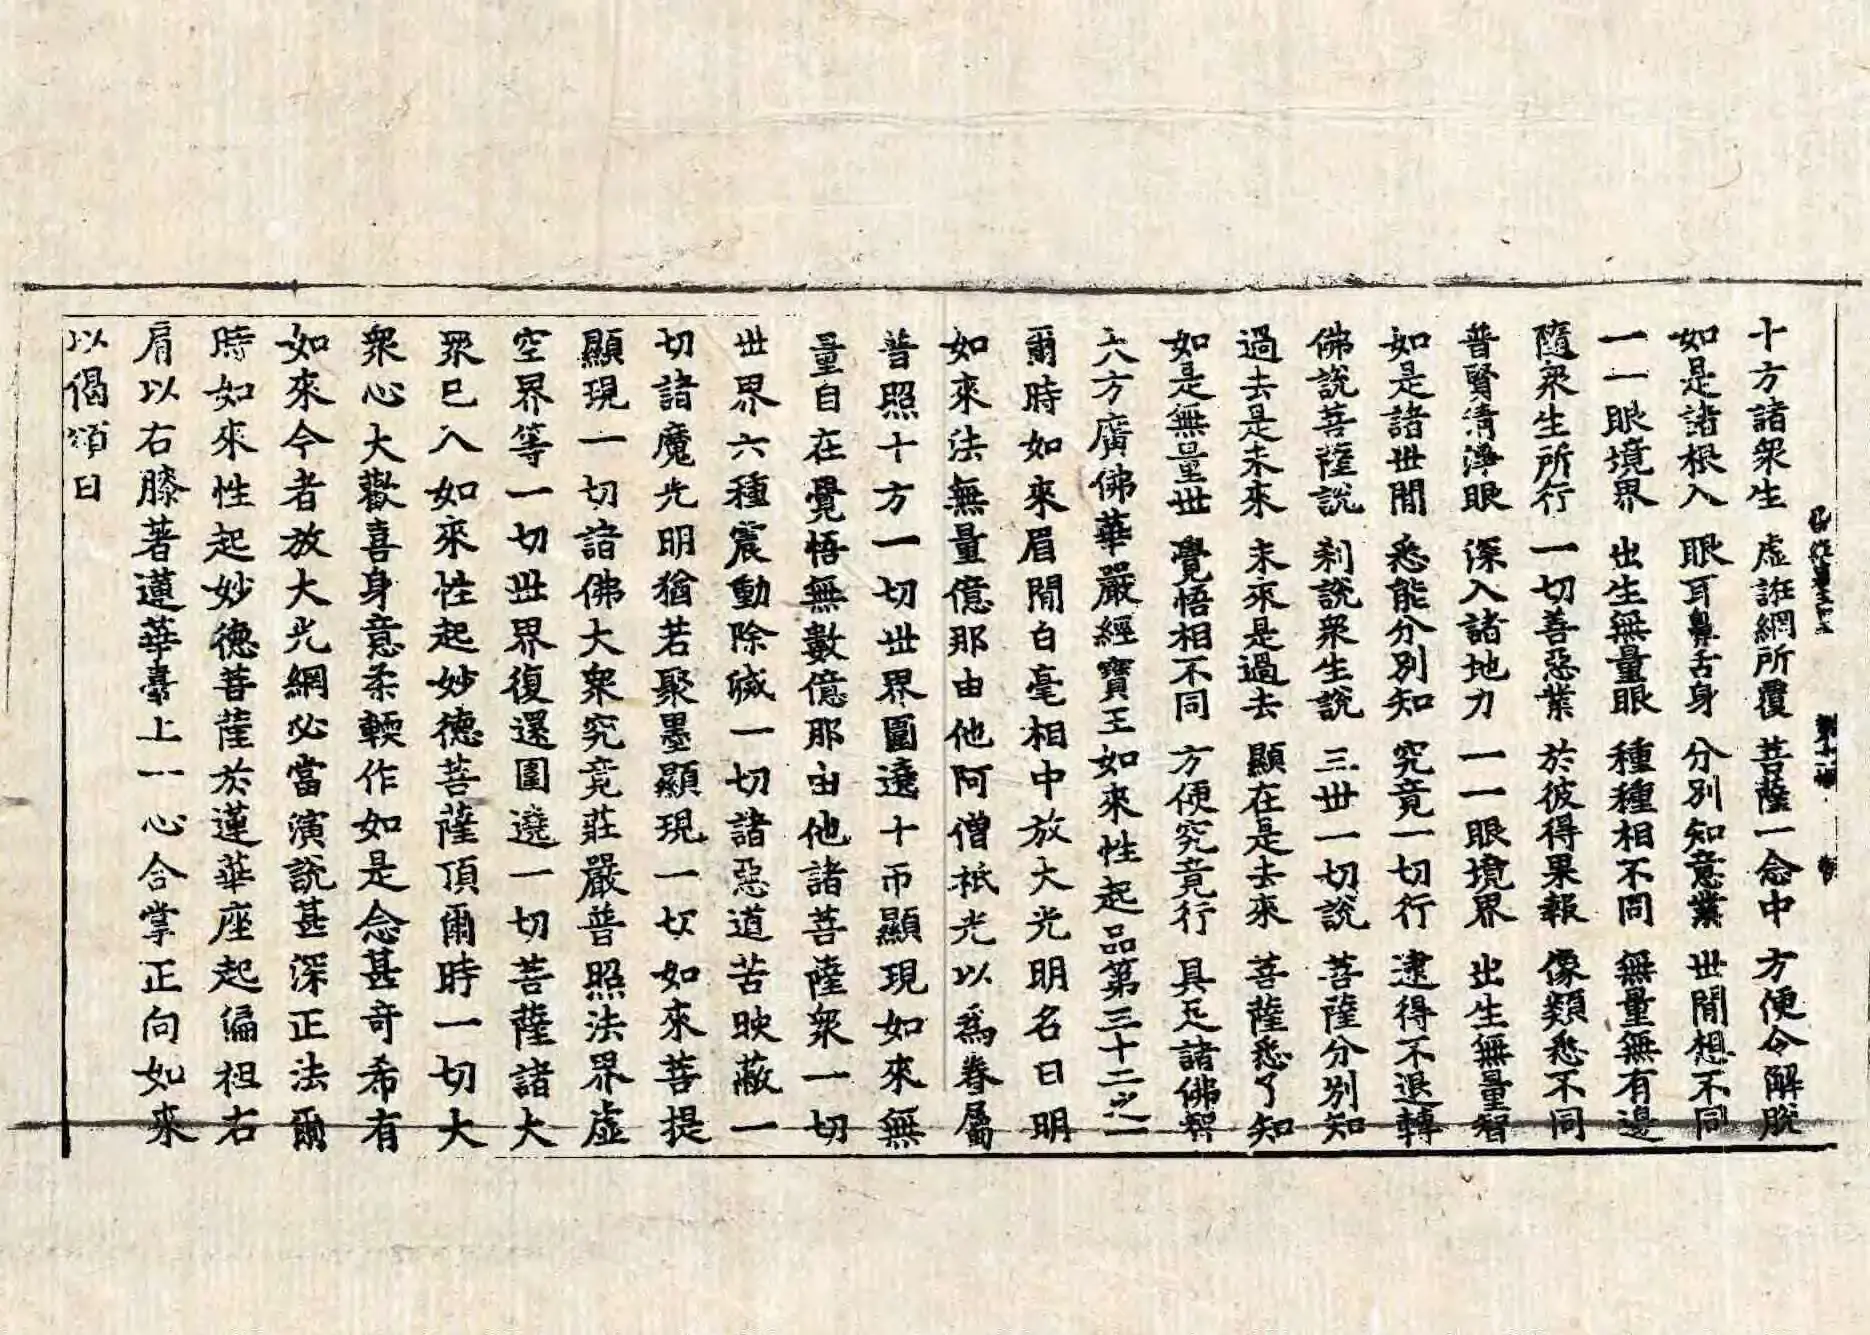 十方諸衆生　虛誑網所覆　菩薩一念中　方便令解脫
如是諸根入　眼耳鼻舌身　分別知意業　世間想不同
一一眼境界　出生無量眼　種種相不同　無量無有邊
隨衆生所行　一切善惡業　於彼得果報　像類悉不同
普賢清淨眼　深入諸地力　一一眼境界　出生無量智
如是諸世間　悉能分別知　究竟一切行　逮得不退轉
佛說菩薩說　刹說衆生說　三世一切說　菩薩分別知
過去是未來　未來是過去　顯在是去來　菩薩悉了知
如是無量世　覺悟相不同　方便究竟行　具足諸佛智
大方廣佛華嚴經寶王如來性起品第三十二之一
爾時如來眉間白毫相中放大光明名曰明
如來法無量億那由他阿僧祇光以爲眷屬
普照十方一切世界圍遶十帀顯現如來無
量自在覺悟無數億那由他諸菩薩衆一切
世界六種震動除滅一切諸惡道苦映蔽一
切諸魔光明猶若聚墨顯現一切如來菩提
顯現一切諸佛大衆究竟莊嚴普照法界虛
空界等一切世界復還圍遶一切菩薩諸大
衆已入如來性起妙德菩薩頂爾時一切大
衆心大歡喜身意柔輭作如是念甚奇希有
如來今者放大光網必當演說甚深正法爾
時如來性起妙德菩薩於蓮華座起偏袒右
肩以右膝著蓮華臺上一心合掌正向如來
以偈頌曰